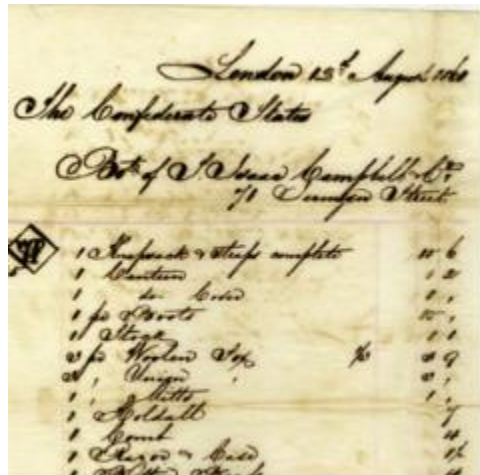 London 13th August
The Confederate States
Bot. of S Isaac Campbell & Co
71 Jermyn Street
1 Knapsack & straps complete 6
1 Canteen 1 2
1 do Cover 1
1 pr Boots
1 Stock 1 1
2 pr Woolen Sox 9
2 " Union "
1 " Mitts 1
1 Holdall
1 Comb 4
1 Razor & Case